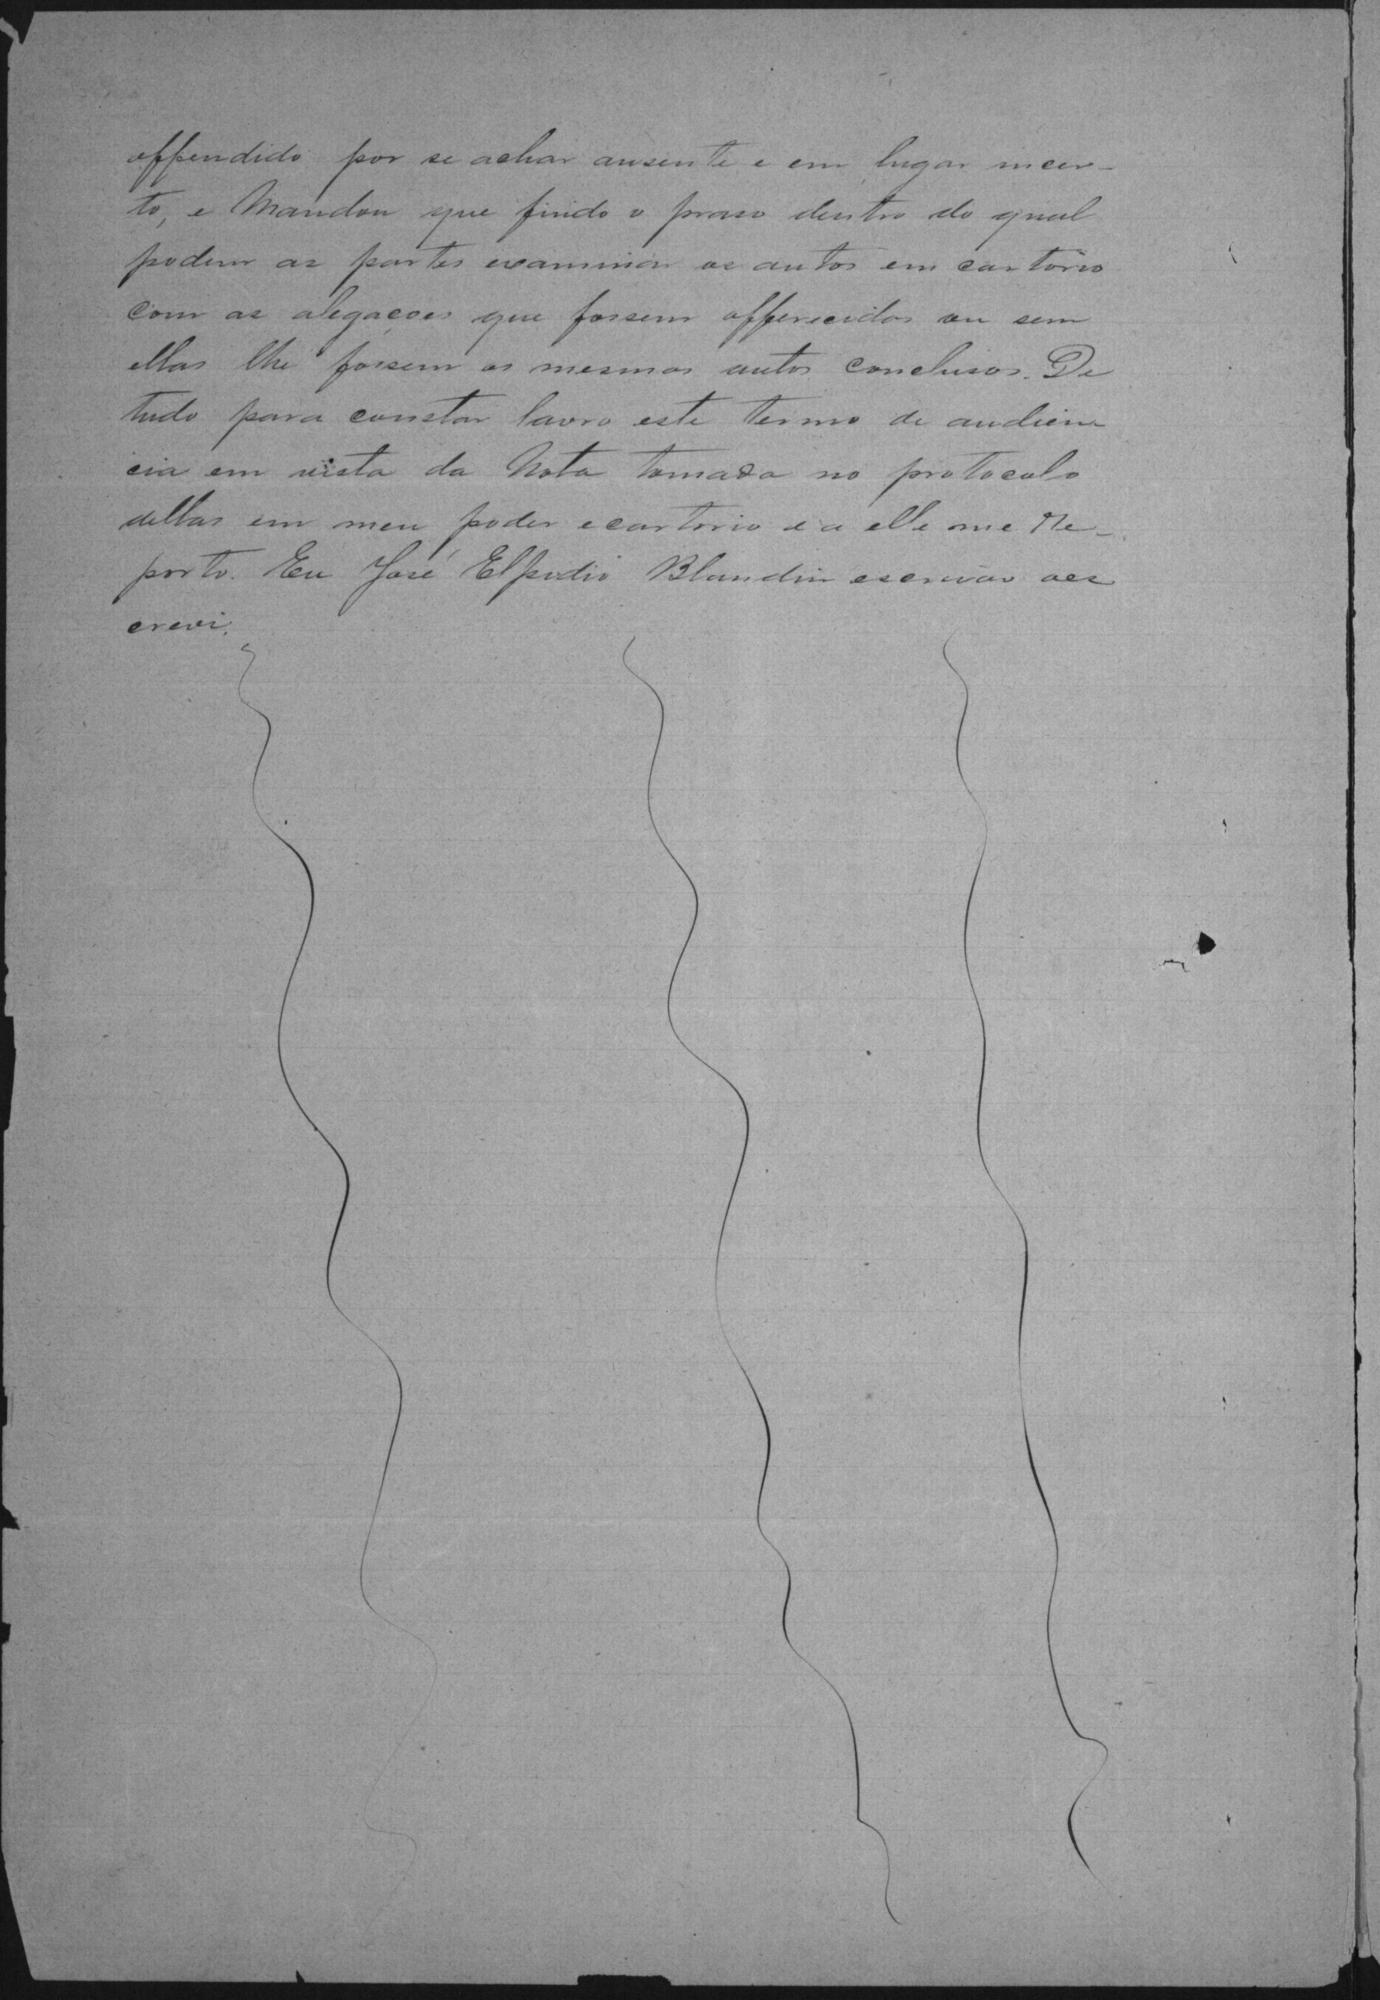 offendido por se achar ausente e em lugar incer-
to, e Mandou que findo o praso dentro do qual
podem as partes examinar os autos em cartorio
com as alegações que fossem offerecidas ou sem
ellas lhe fossem os mesmos autos conclusos. De
tudo para constar lavro este termo de audien
cia em vista da Nota tomada no protocolo
dellas em meu poder e cartorio e a elle me Re-
porto. Eu José Elpidio Blandin escrivão oes
crevi.